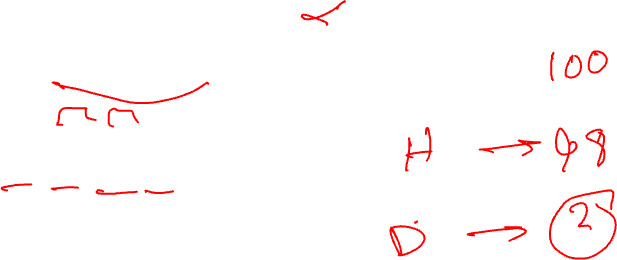 100
H → 98
D → 2